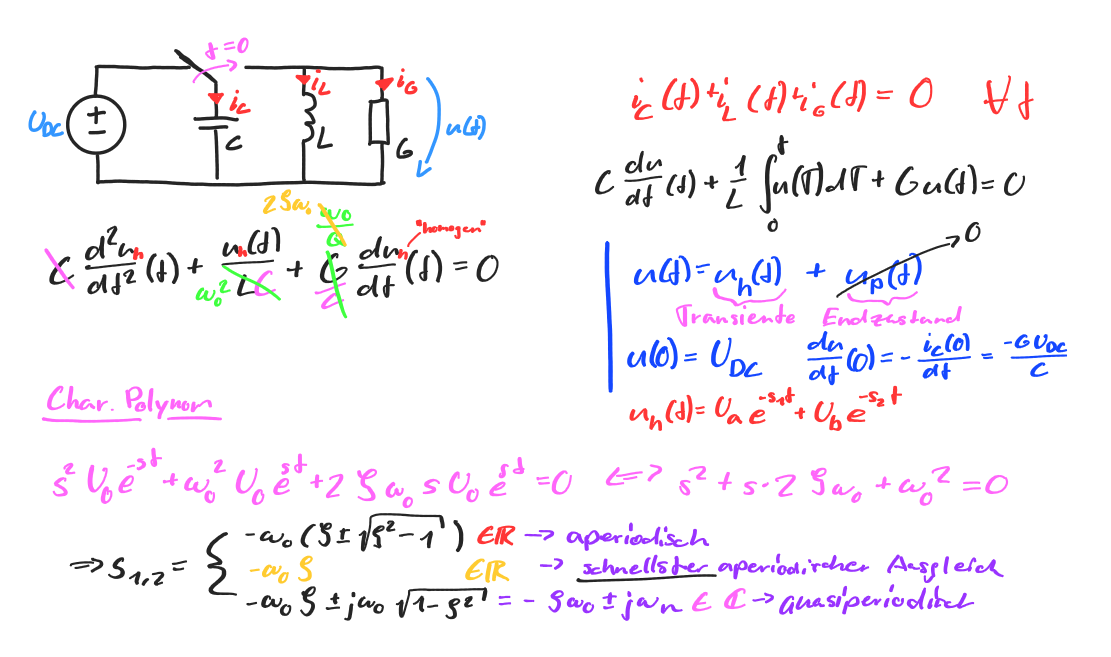 t=0
U_DC
i_C
C
i_L
L
i_G
G
u(t)
i_C(t) + i_L(t) + i_G(t) = 0 ∀t
C du/dt (t) + 1/L ∫_0^t u(τ)dτ + G u(t) = 0
2ζω₀ ω₀/Q "homogen"
C d²u_h/dt² (t) + u_h(t)/LC + G/C du_h/dt (t) = 0
ω₀²
u(t) = u_h(t) + u_p(t) → 0
Transiente Endzustand
u(0) = U_DC du/dt (0) = - i_C(0)/dt = -G U_DC/C
u_h(t) = U_a e^{-s₁t} + U_b e^{-s₂t}
Char. Polynom
s² U₀ e^{-st} + ω₀² U₀ e^{st} + 2 ζ ω₀ s U₀ e^{st} = 0 <=> s² + s·2 ζω₀ + ω₀² = 0
=> s_{1,2} = { -ω₀ (ζ ± √(ζ²-1)) ∈ℝ → aperiodisch
-ω₀ ζ ∈ℝ → schnellster aperiodischer Ausgleich
-ω₀ ζ ± jω₀ √(1-ζ²) = - ζω₀ ± jω_n ∈ ℂ → quasiperiodisch